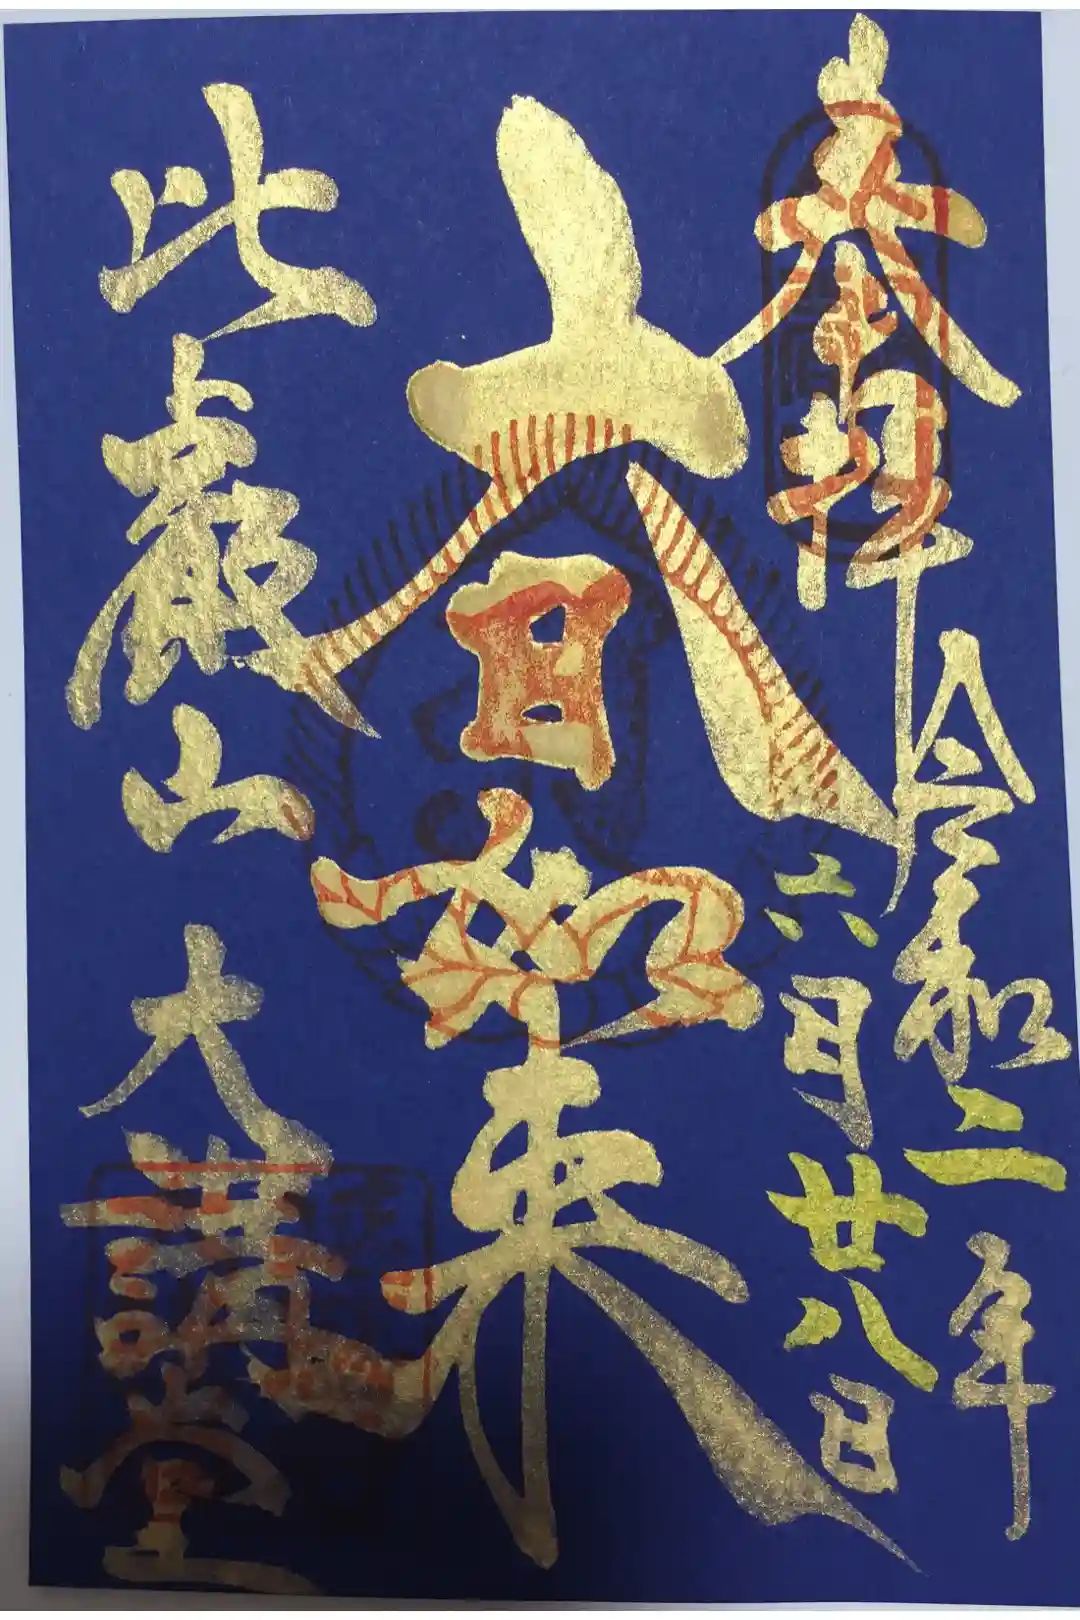 奉拝
令和二年
六月廿八日
大日如来
比叡山 大講堂